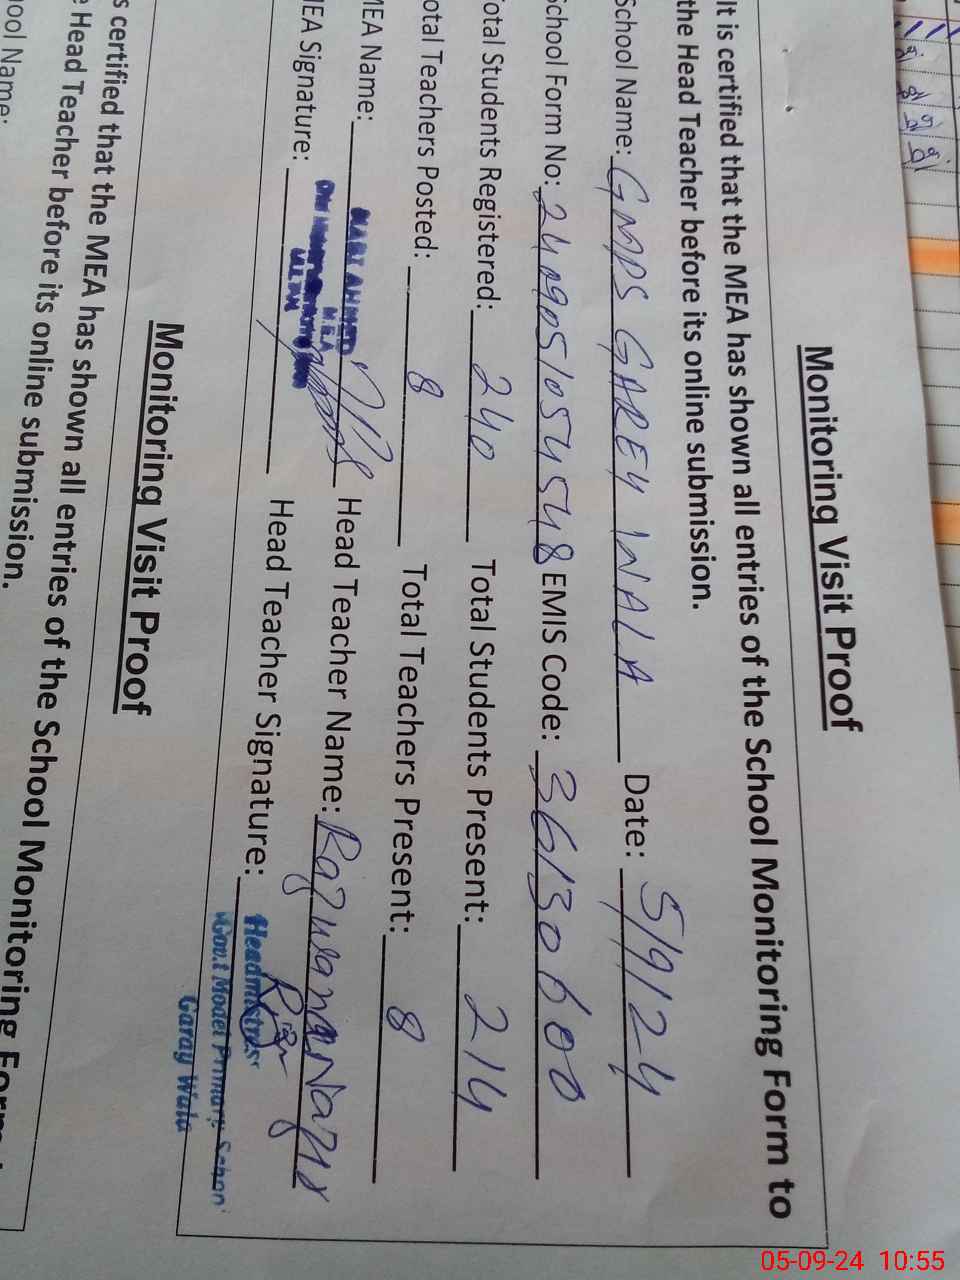 Monitoring Visit Proof
It is certified that the MEA has shown all entries of the School Monitoring Form to
the Head Teacher before its online submission.
School Name: GMPS GAREY WALA Date: 5/9/24
School Form No: 2409051054548 EMIS Code: 36130600
Total Students Registered: 240 Total Students Present: 214
Total Teachers Posted: 8 Total Teachers Present: 8
MEA Name: AHMED Head Teacher Name:
M.E.A
MEA Signature: Head Teacher Signature:
Headmistress
Gov.t Model Primary School
Garay Wala
Monitoring Visit Proof
s certified that the MEA has shown all entries of the School Monitoring Form
e Head Teacher before its online submission.
ool Name:
05-09-24 10:55